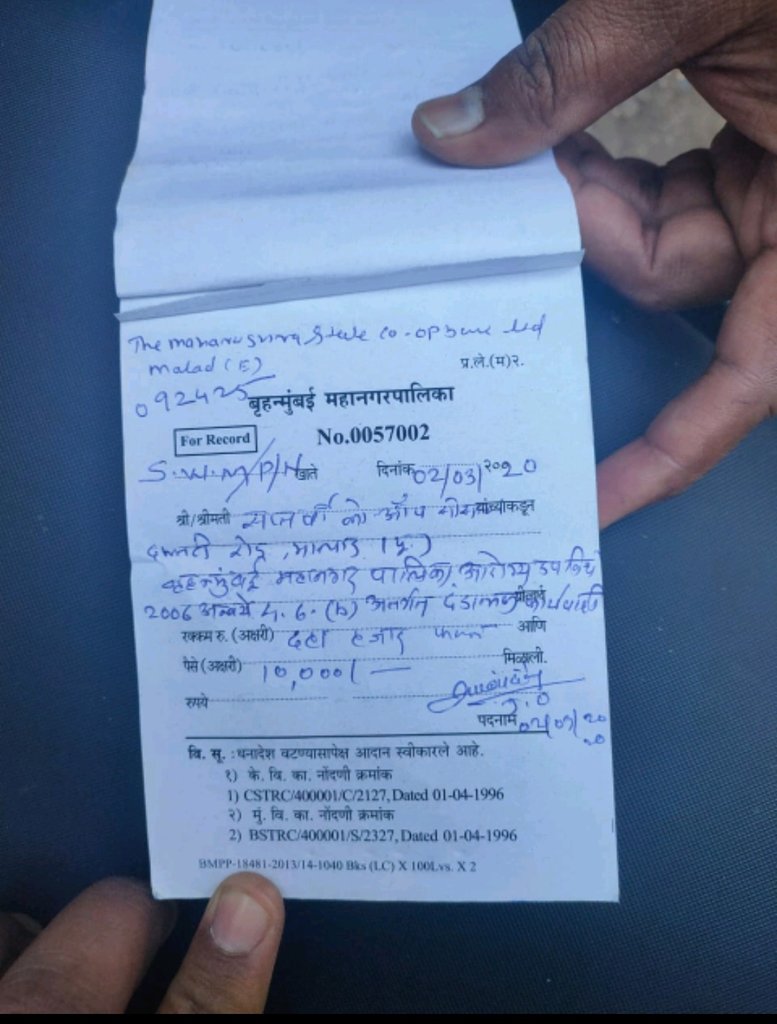 The Maharashtra State co-op Bank Ltd
malad (E)
प्र.ले.(म)२.
092425
बृहन्मुंबई महानगरपालिका
For Record No.0057002
S.W.M/P/N खाते दिनांक 02/03/२०20
श्री/श्रीमती को ऑप यांच्याकडून
रोड, मालाड (पु.)
बृहन्मुंबई महानगर पालिका, आरोग्य उपविधी
2006 अन्वये 4.6.(b) अंतर्गत
रक्कम रु. (अक्षरी) दहा हजार फक्त आणि
पैसे (अक्षरी) 10,000/- मिळाली.
रुपये
पदनाम 02/03/2020
वि. सू. : धनादेश वटण्यासापेक्ष आदान स्वीकारले आहे.
१) के. वि. का. नोंदणी क्रमांक
1) CSTRC/400001/C/2127, Dated 01-04-1996
२) मुं. वि. का. नोंदणी क्रमांक
2) BSTRC/400001/S/2327, Dated 01-04-1996
BMPP-18481-2013/14-1040 Bks (LC) X 100Lvs. X 2